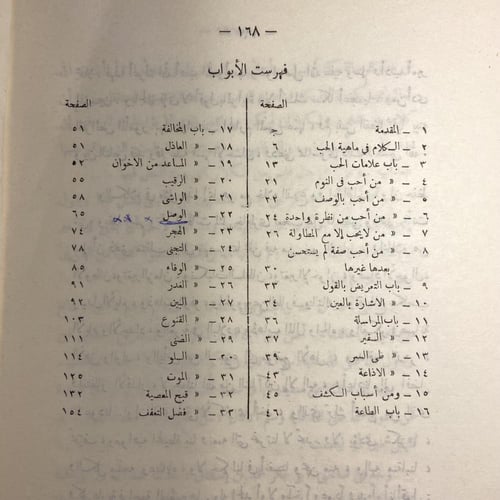 — ١٦٨ —
فهرست الأبواب
الصفحة
١ — المقدمة ج
٢ — الكلام فى ماهية الحب ٦
٣ — باب علامات الحب ١٣
٤ — « من أحب فى النوم ٢١
٥ — « من أحب بالوصف ٢٢
٦ — « من أحب من نظرة واحدة ٢٤
٧ — « من لايحب إلا مع المطاولة ٢٦
٨ — « من أحب صفة لم يستحسن
بعدها غيرها ٣٠
٩ — باب التعريض بالقول ٣٣
١٠ — « الاشارة بالعين ٣٤
١١ — باب المراسلة ٣٦
١٢ — « السفير ٣٧
١٣ — « طى السر ٣٩
١٤ — « الاذاعة ٤٣
١٥ — ومن أسباب الكشف ٤٥
١٦ — باب الطاعة ٤٦
الصفحة
١٧ — باب المخالفة ٥١
١٨ — « العاذل ٥١
١٩ — « المساعد من الاخوان ٥٢
٢٠ — « الرقيب ٥٥
٢١ — « الواشى ٥٨
٢٢ — « الوصل ٦٥
٢٣ — « الهجر ٧٤
٢٤ — « التجنى ٧٨
٢٥ — « الوفاء ٨٥
٢٦ — « الغدر ٩١
٢٧ — « البين ٩٢
٢٨ — « القنوع ١٠٣
٢٩ — « الضنى ١١١
٣٠ — « السلو ١١٤
٣١ — « الموت ١٢٥
٣٢ — « قبح المعصية ١٣٢
٣٣ — « فضل التعفف ١٥٤